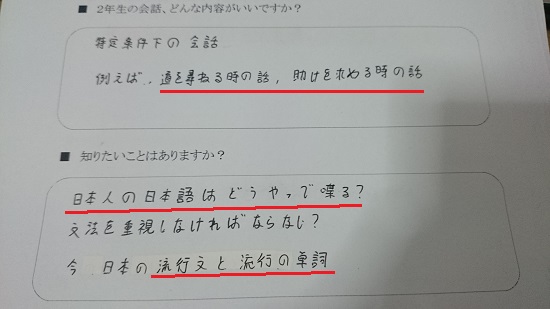 ■ 2年生の会話、どんな内容がいいですか？
特定条件下の会話
例えば、道を尋ねる時の話，助けを求める時の話
■ 知りたいことはありますか？
日本人の日本語はどうやって喋る？
文法を重視しなければならなじ？
今 日本の流行文と流行の単詞